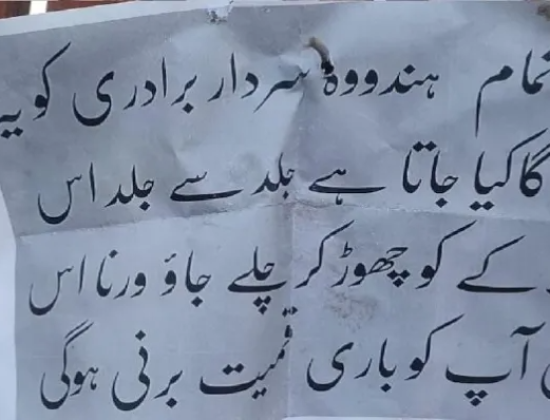 تمام ہندووہ سردار برادری کو یہ
گاکیا جاتا ہے جلد سے جلد اس
کے کو چھوڑ کر چلے جاؤ ورنا اس
آپ کو باری قیمت برنی ہوگی